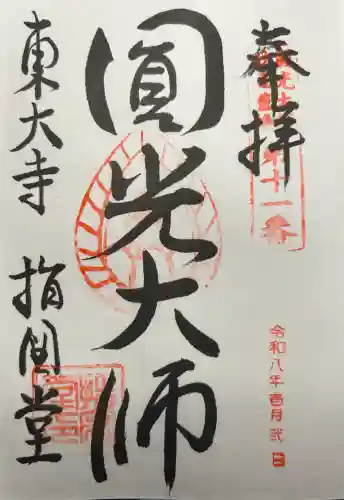 奉拝
第十一番
圓光大師
東大寺 指図堂
令和八年壱月弐日